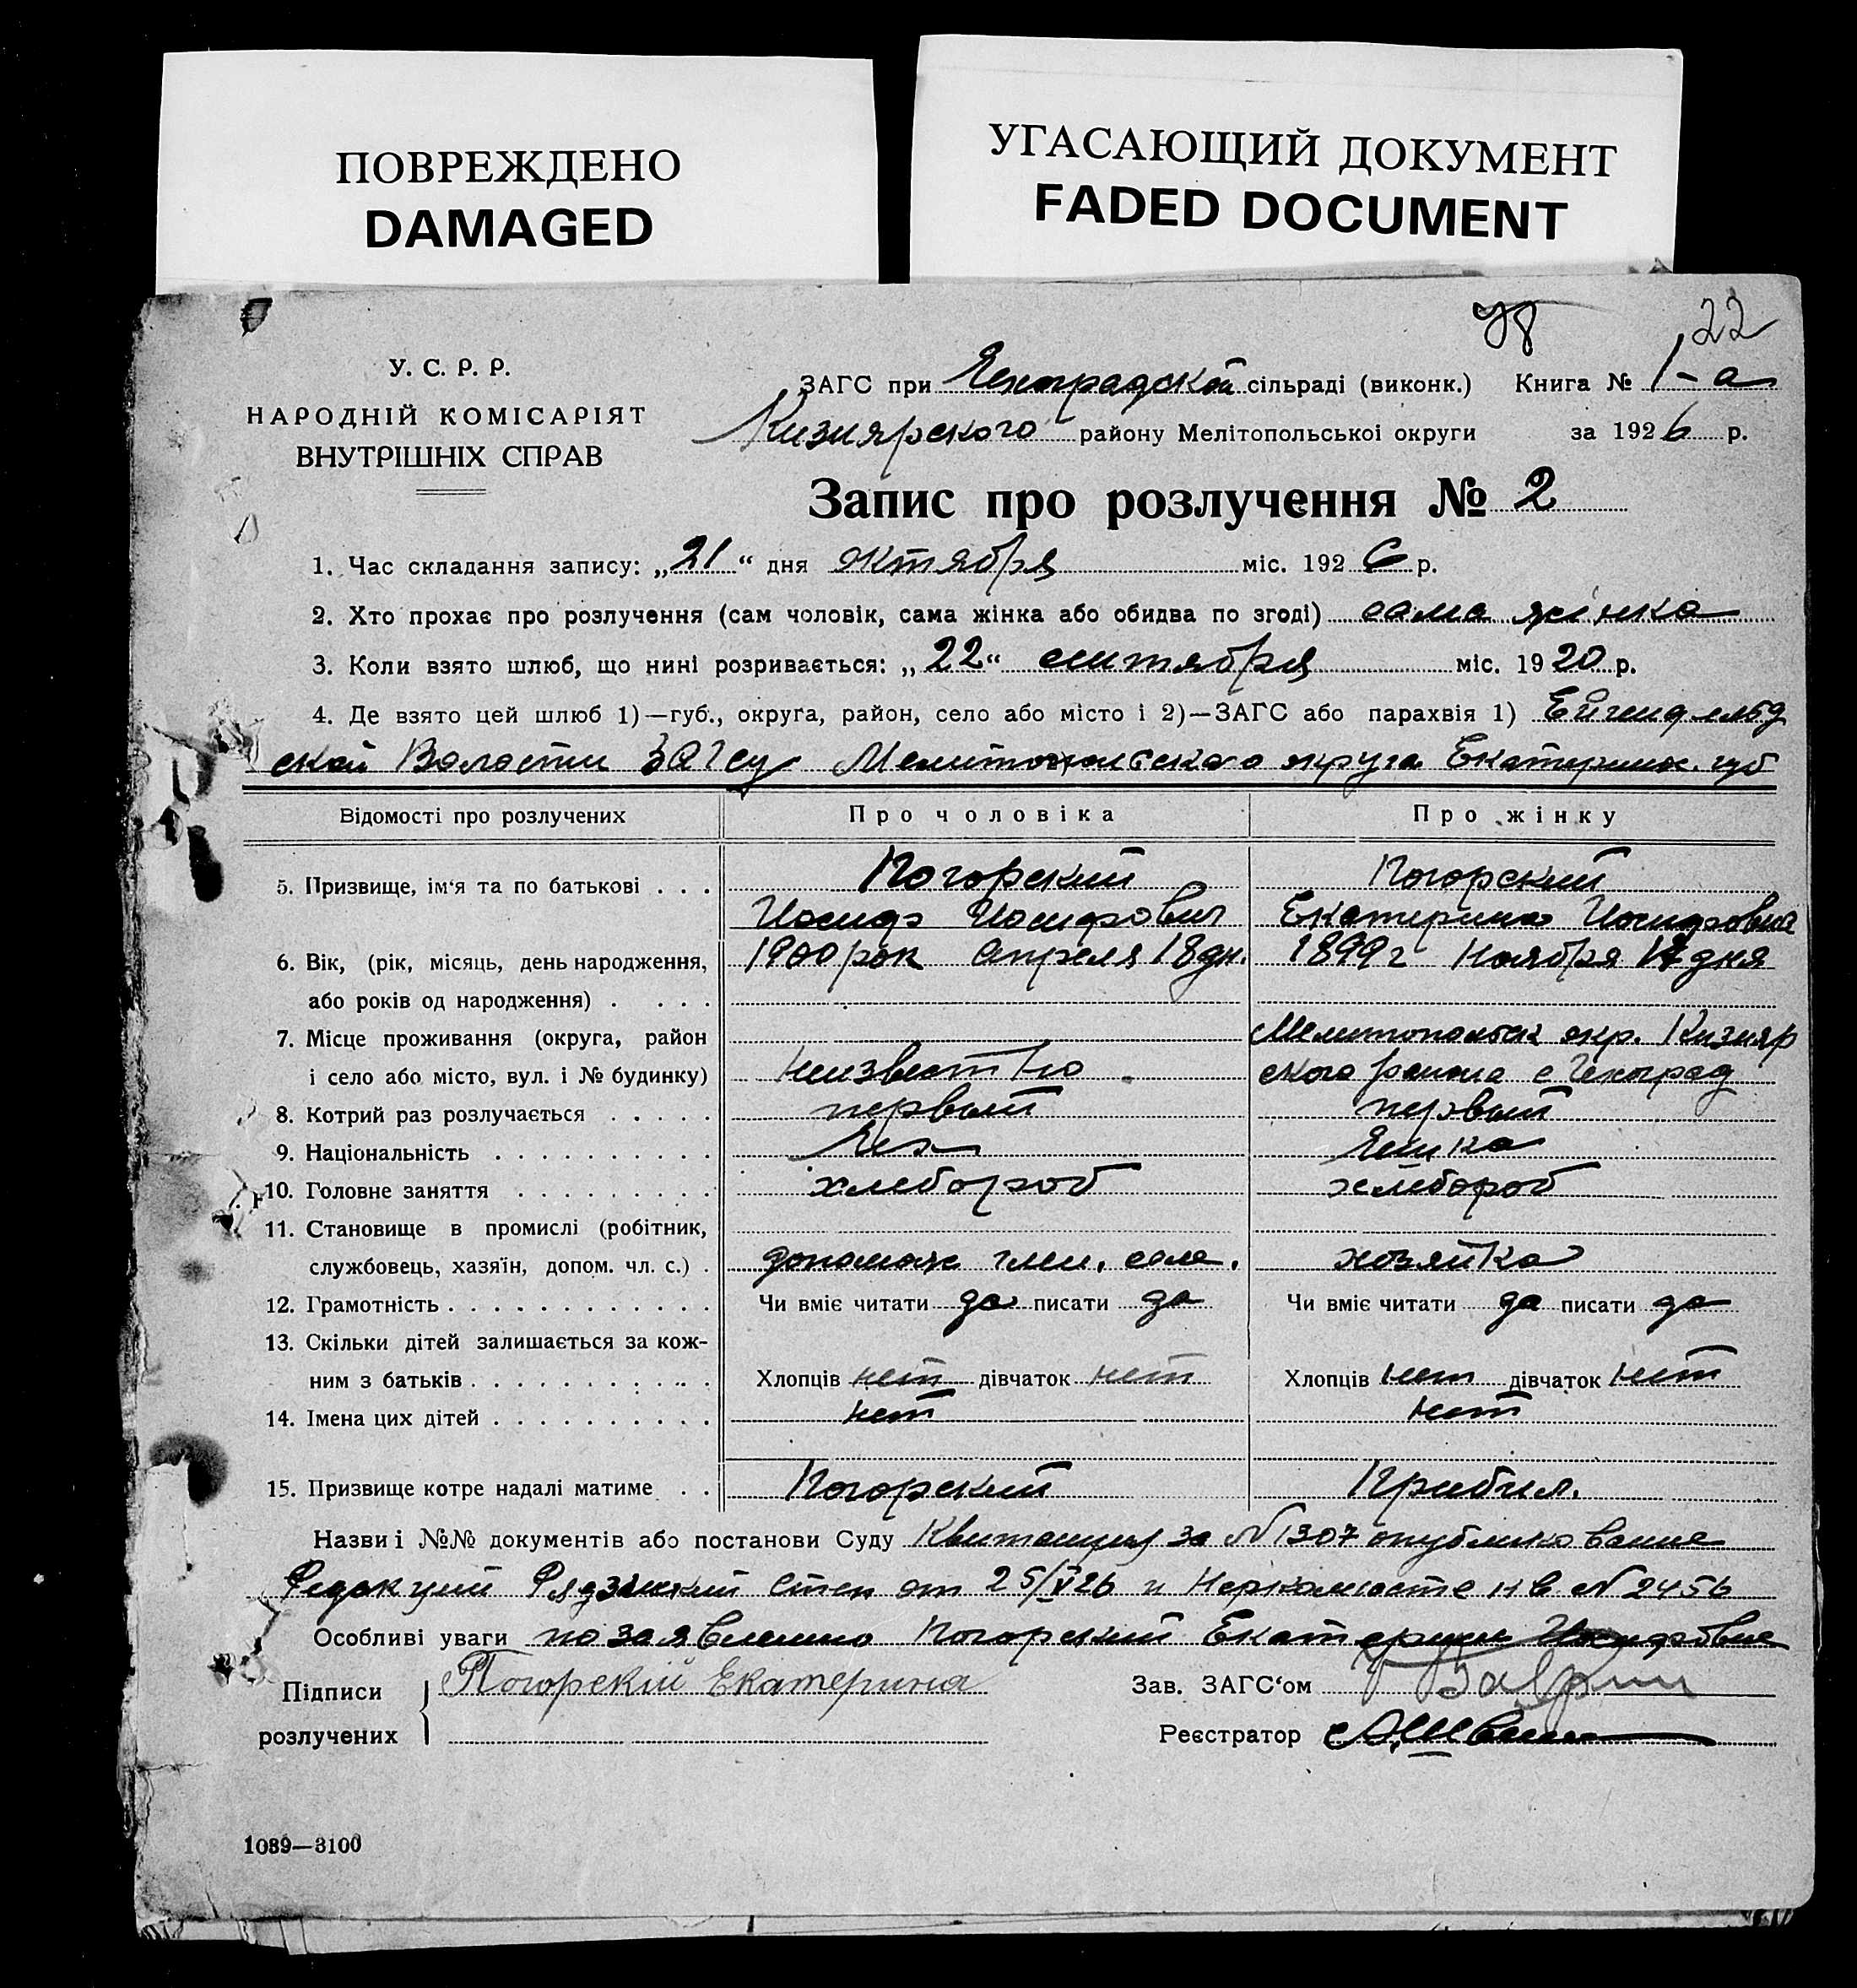 ПОВРЕЖДЕНО
DAMAGED
УГАСАЮЩИЙ ДОКУМЕНТ
FADED DOCUMENT
78
22
У. С. Р. Р.
НАРОДНІЙ КОМІСАРІЯТ
ВНУТРІШНІХ СПРАВ
ЗАГС при Чехоградской сільраді (виконк.) Книга № 1-а
Кизиярского району Мелітопольської округи за 1926 р.
Запис про розлучення № 2
1. Час складання запису: „21“ дня Октября міс. 1926 р.
2. Хто прохає про розлучення (сам чоловік, сама жінка або обидва по згоді) сама жінка
3. Коли взято шлюб, що нині розривається: „22“ сентября міс. 1920 р.
4. Де взято цей шлюб 1)—губ., округа, район, село або місто і 2)—ЗАГС або парахвія 1) Ейгенфельд
ской Волости ЗАГСу Мелитопольского округа Екатеринос. губ
Відомості про розлучених Про чоловіка Про жінку
5. Призвище, ім‘я та по батькові . . . Погорский Погорский
Иосиф Иосифович Екатерина Иосифовна
6. Вік, (рік, місяць, день народження, 1900 рок Апреля 18 дн. 1899 г Ноября дня
або років од народження) . . . .
7. Місце проживання (округа, район Мелитопольск окр. Кизияр
і село або місто, вул. і № будинку) неизвестно ского района с Чехоград
8. Котрий раз розлучається . . . . . первый первый
9. Національність . . . . . . . . . . Чех Чешка
10. Головне заняття . . . . . . . . . хлебороб хлебороб
11. Становище в промислі (робітник,
службовець, хазяїн, допом. чл. с.) . допомож член. сем. хозяйка
12. Грамотність . . . . . . . . . . . . Чи вміє читати да писати да Чи вміє читати да писати да
13. Скільки дітей залишається за кож-
ним з батьків . . . . . . . . . . . Хлопців нет дівчаток нет Хлопців нет дівчаток нет
14. Імена цих дітей . . . . . . . . . . нет нет
15. Призвище котре надалі матиме . . Погорский Прибыл.
Назви і №№ документів або постанови Суду Квитанция за №1307 опубликование
Редакции Степ от 25/V 26 и № 2456
Особливі уваги по заявлению Погорский Екатерины Иосифовне
Підписи Погорскій Екатерина Зав. ЗАГС‘ом
розлучених Реєстратор
1089—3100